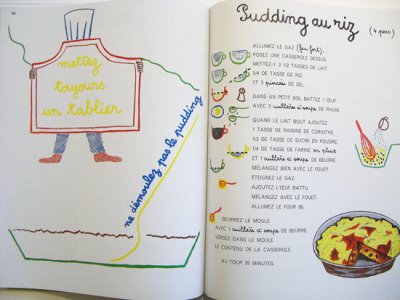 44
mettez
toujours
un tablier
ne démoulez pas le pudding
Pudding au riz
(4 pers)
ALLUMEZ LE GAZ (feu fort).
POSEZ UNE CASSEROLE DESSUS
METTEZ-Y 3 1/2 TASSES DE LAIT
3/4 DE TASSE DE RIZ
ET 3 pincées DE SEL.
DANS UN PETIT BOL BATTEZ 1 ŒUF
AVEC 2 cuillers à soupe DE RHUM.
QUAND LE LAIT BOUT AJOUTEZ
1 TASSE DE RAISINS DE CORINTHE.
1/3 DE TASSE DE SUCRE EN POUDRE.
1/4 DE TASSE DE FARINE en pluie
ET 1 cuiller à soupe DE BEURRE.
MÉLANGEZ BIEN AVEC LE FOUET.
ÉTEIGNEZ LE GAZ.
AJOUTEZ L'ŒUF BATTU.
MÉLANGEZ AVEC LE FOUET.
ALLUMEZ LE FOUR
BEURREZ LE MOULE
AVEC 1 cuiller à soupe DE BEURRE.
VERSEZ DANS LE MOULE
LE CONTENU DE LA CASSEROLE.
AU FOUR 35 MINUTES.